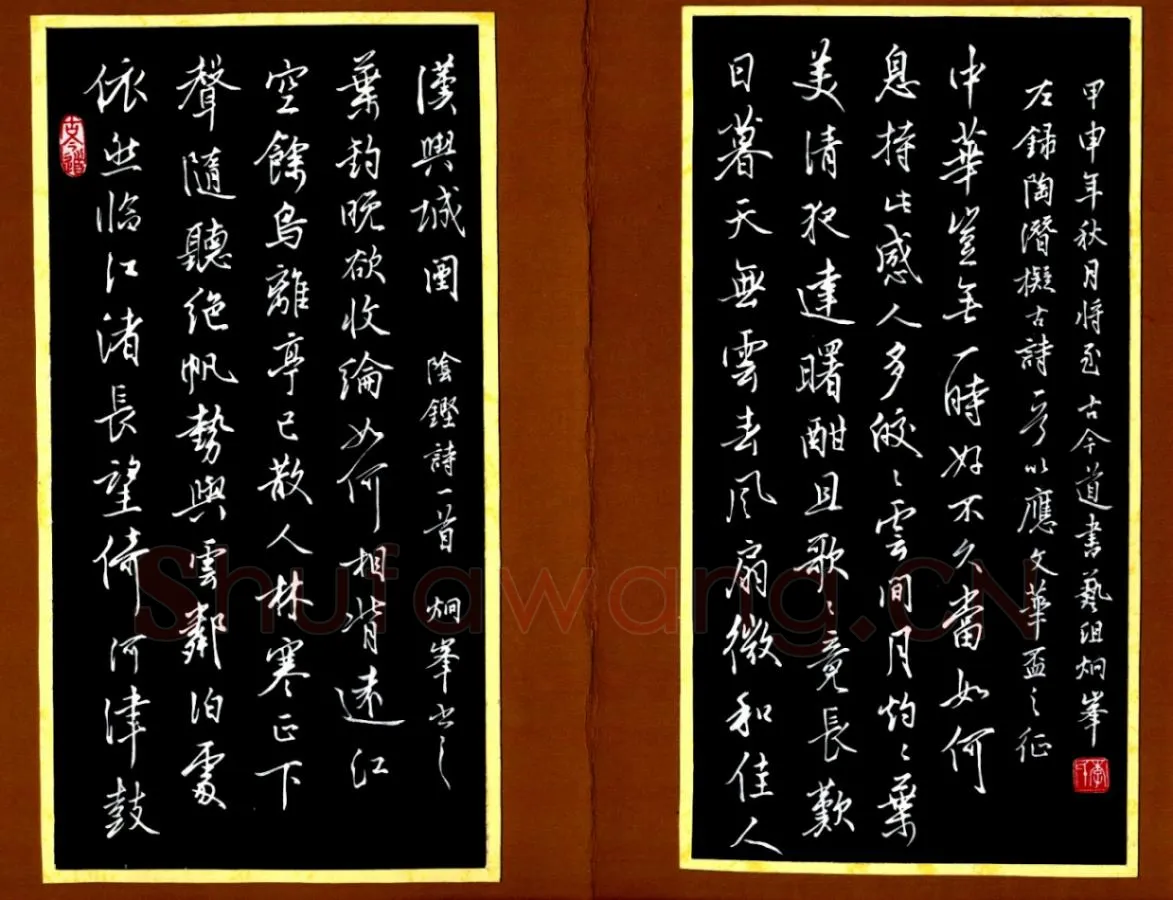 依然臨江渚長望倚河津鼓
聲隨聽絶帆勢與雲鄰泊處
空餘鳥離亭已散人林寒正下
葉釣晚欲收綸如何相背遠江
漢與城闉 陰鏗詩一首 炯峯书之
古今道
日暮天無雲春風扇微和佳人
美清夜達曙酣且歌〻竟長歎
息持此感人多皎〻雲間月灼〻葉
中華豈無一時好不久當如何
左録陶潛擬古詩一首以應文華盃之征
甲申年秋月將至古今道書藝炯峯
Shufawang.CN